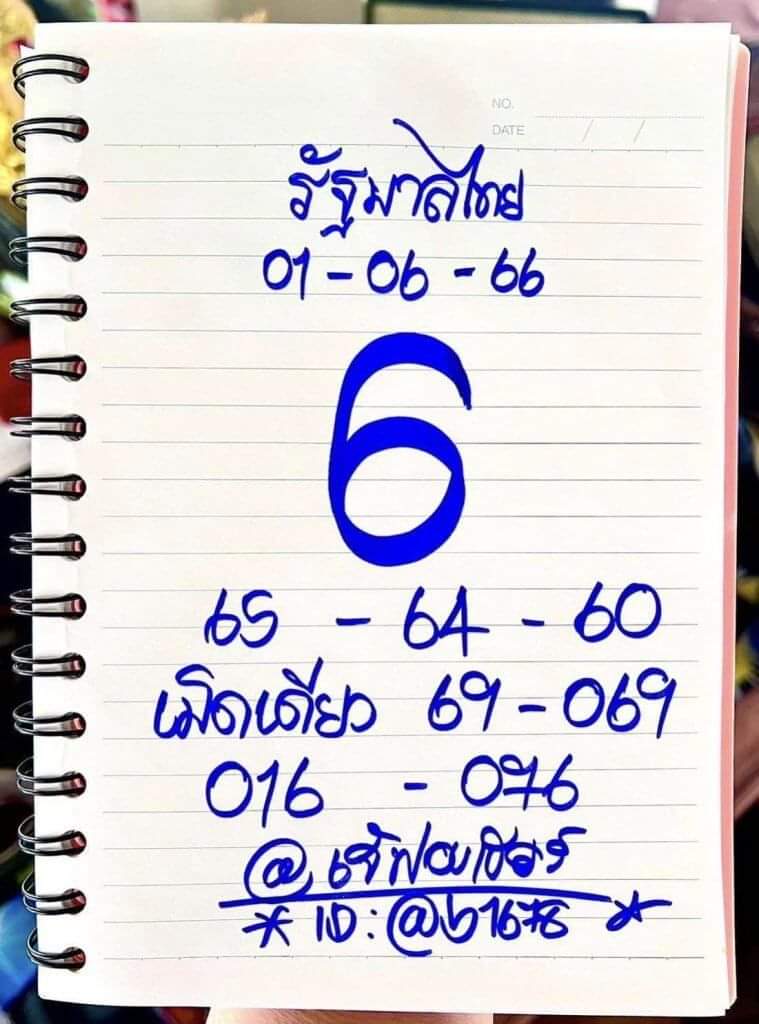 NO.
DATE / /
รัฐบาลไทย
01 - 06 - 66
6
65 - 64 - 60
เม็ดเดียว 69 - 069
016 - 076
@
* ID: @b1678 *